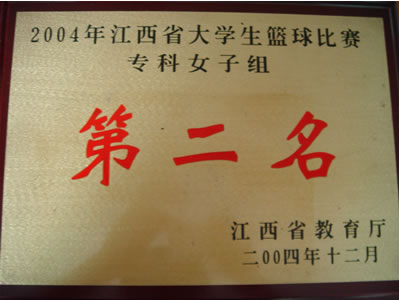 2004年江西省大学生篮球比赛
专科女子组
第二名
江西省教育厅
二00四年十二月